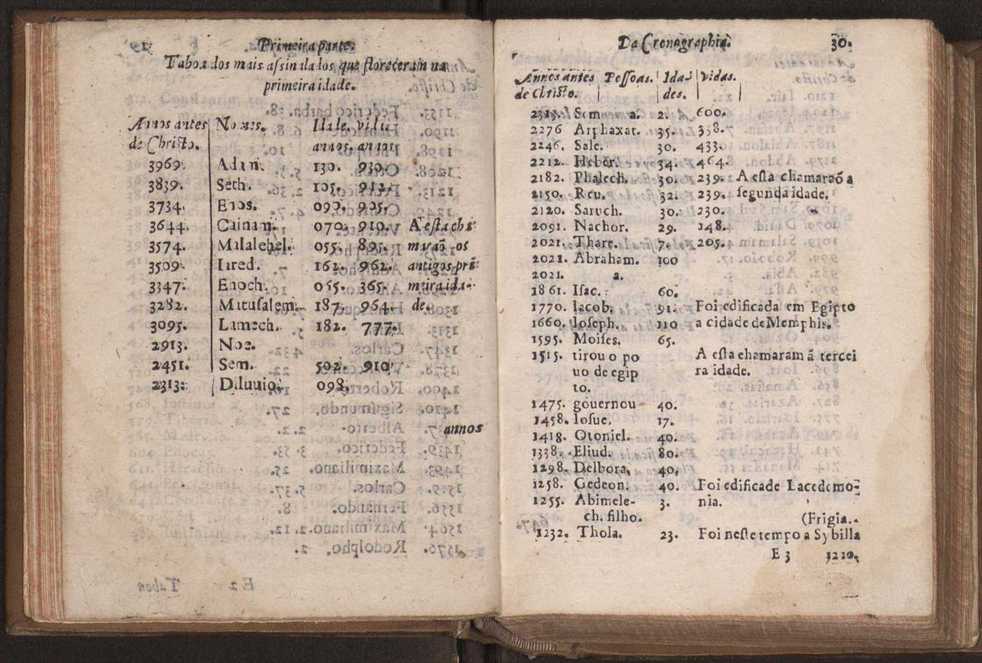 Primeira parte.
Taboa dos mais assinalados que floreceram na
primeira idade.
Annos antes Nomes. Idade. vidas
de Christo. annos. annos
3969. Adam. 130. 930.
3839. Seth. 105. 912.
3734. Enos. 090. 905.
3644. Cainam. 070. 910. A esta cha
3574. Malalehel. 055. 895. maraõ os
3509. Iared. 162. 962. antigos pri
3347. Enoch. 055. 365. meira ida-
3282. Matusalem. 187. 964. de.
3095. Lamech. 182. 777.
2913. Noe.
2451. Sem. 502. 910
2313. Diluuio. 098.
annos
Da Cronographia. 30.
Annos antes Pessoas. Ida- vidas.
de Christo. des.
2313. Sem a. 2. 600.
2276 Arphaxat. 35. 338.
2246. Sale. 30. 433.
2212. Heber. 34. 464.
2182. Phalech. 30. 239. A esta chamaraõ a
2150. Reu. 32. 239. segunda idade.
2120. Saruch. 30. 230.
2091. Nachor. 29. 148.
2021. Thare. 7. 205.
2021. Abraham. 100
2021. a.
1861. Isac. 60.
1770. Iacob. 91. Foi edificada em Egipto
1660. Ioseph. 110 a cidade de Memphis.
1595. Moises. 65.
1515. tirou o po A esta chamaram ã tercei
uo de egip ra idade.
to.
1475. gouernou 40.
1458. Iosue. 17.
1418. Otoniel. 40.
1338. Eliud. 80.
1298. Delbora. 40.
1258. Gedeon. 40. Foi edificade Lacedemo-
1255. Abimele- 3. nia.
ch. filho. (Frigia.
1232. Thola. 23. Foi neste tempo a Sybilla
E 3 1210.